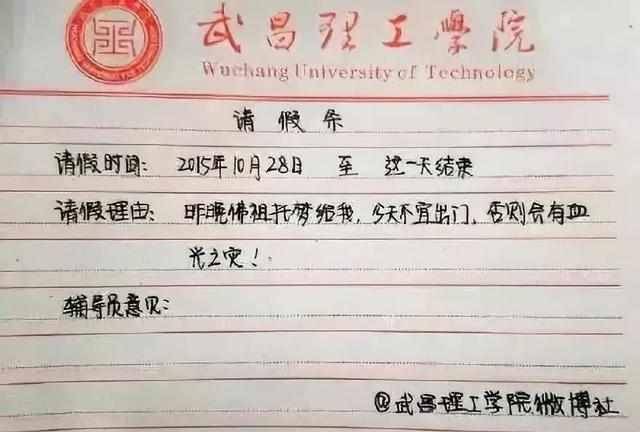 武昌理工学院
Wuchang University of Technology
请假条
请假时间： 2015年10月28日 至 这一天结束
请假理由： 昨晚佛祖托梦给我，今天不宜出门，否则会有血
光之灾！
辅导员意见：
@武昌理工学院微博社